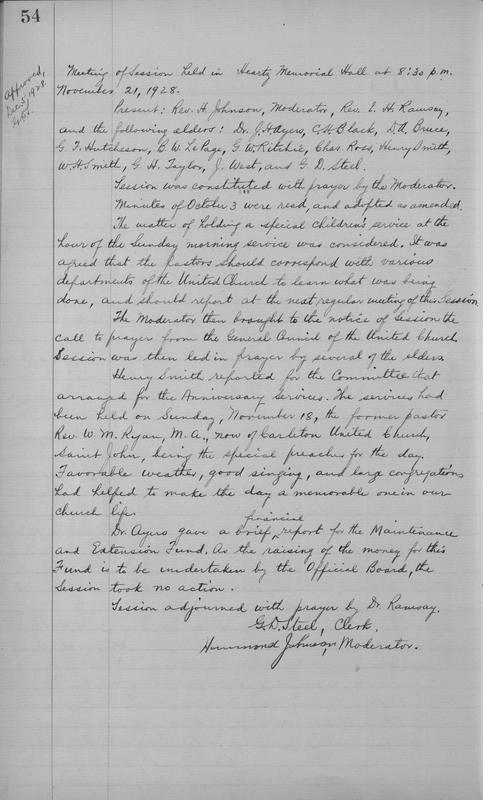 54
Approved,
Dec. 5, 1928
G.D.S.
Meeting of Session held in Heartz Memorial Hall at 8:30 p.m.
November 21, 1928.
Present: Rev. H. Johnson, Moderator, Rev. E. H. Ramsay,
and the following elders: Dr. J. H. Ayers, C. H. Black, D. A. Bruce,
G. F. Hutcheson, B. W. LePage, G. W. Ritchie, Chas. Ross, Henry Smith,
W. H. Smith, G. H. Taylor, J. West, and G. D. Steel.
Session was constituted with prayer by the Moderator.
Minutes of October 3 were read, and adopted as amended.
The matter of holding a special children's service at the
hour of the Sunday morning service was considered. It was
agreed that the pastors should correspond with various
departments of the United Church to learn what was being
done, and should report at the next regular meeting of this Session.
The Moderator then brought to the notice of Session the
call to prayer from the General Council of the United Church.
Session was then led in prayer by several of the elders.
Henry Smith reported for the Committee that
arranged for the Anniversary Services. The services had
been held on Sunday, November 18, the former pastor
Rev. W. M. Ryan, M.A., now of Carleton United Church,
Saint John, being the special preacher for the day.
Favorable weather, good singing, and large congregations
had helped to make the day a memorable one in our
church life.
Dr. Ayers gave a brief financial report for the Maintenance
and Extension Fund. As the raising of the money for this
Fund is to be undertaken by the Official Board, the
Session took no action.
Session adjourned with prayer by Dr. Ramsay.
G. D. Steel, Clerk.
Hammond Johnson, Moderator.